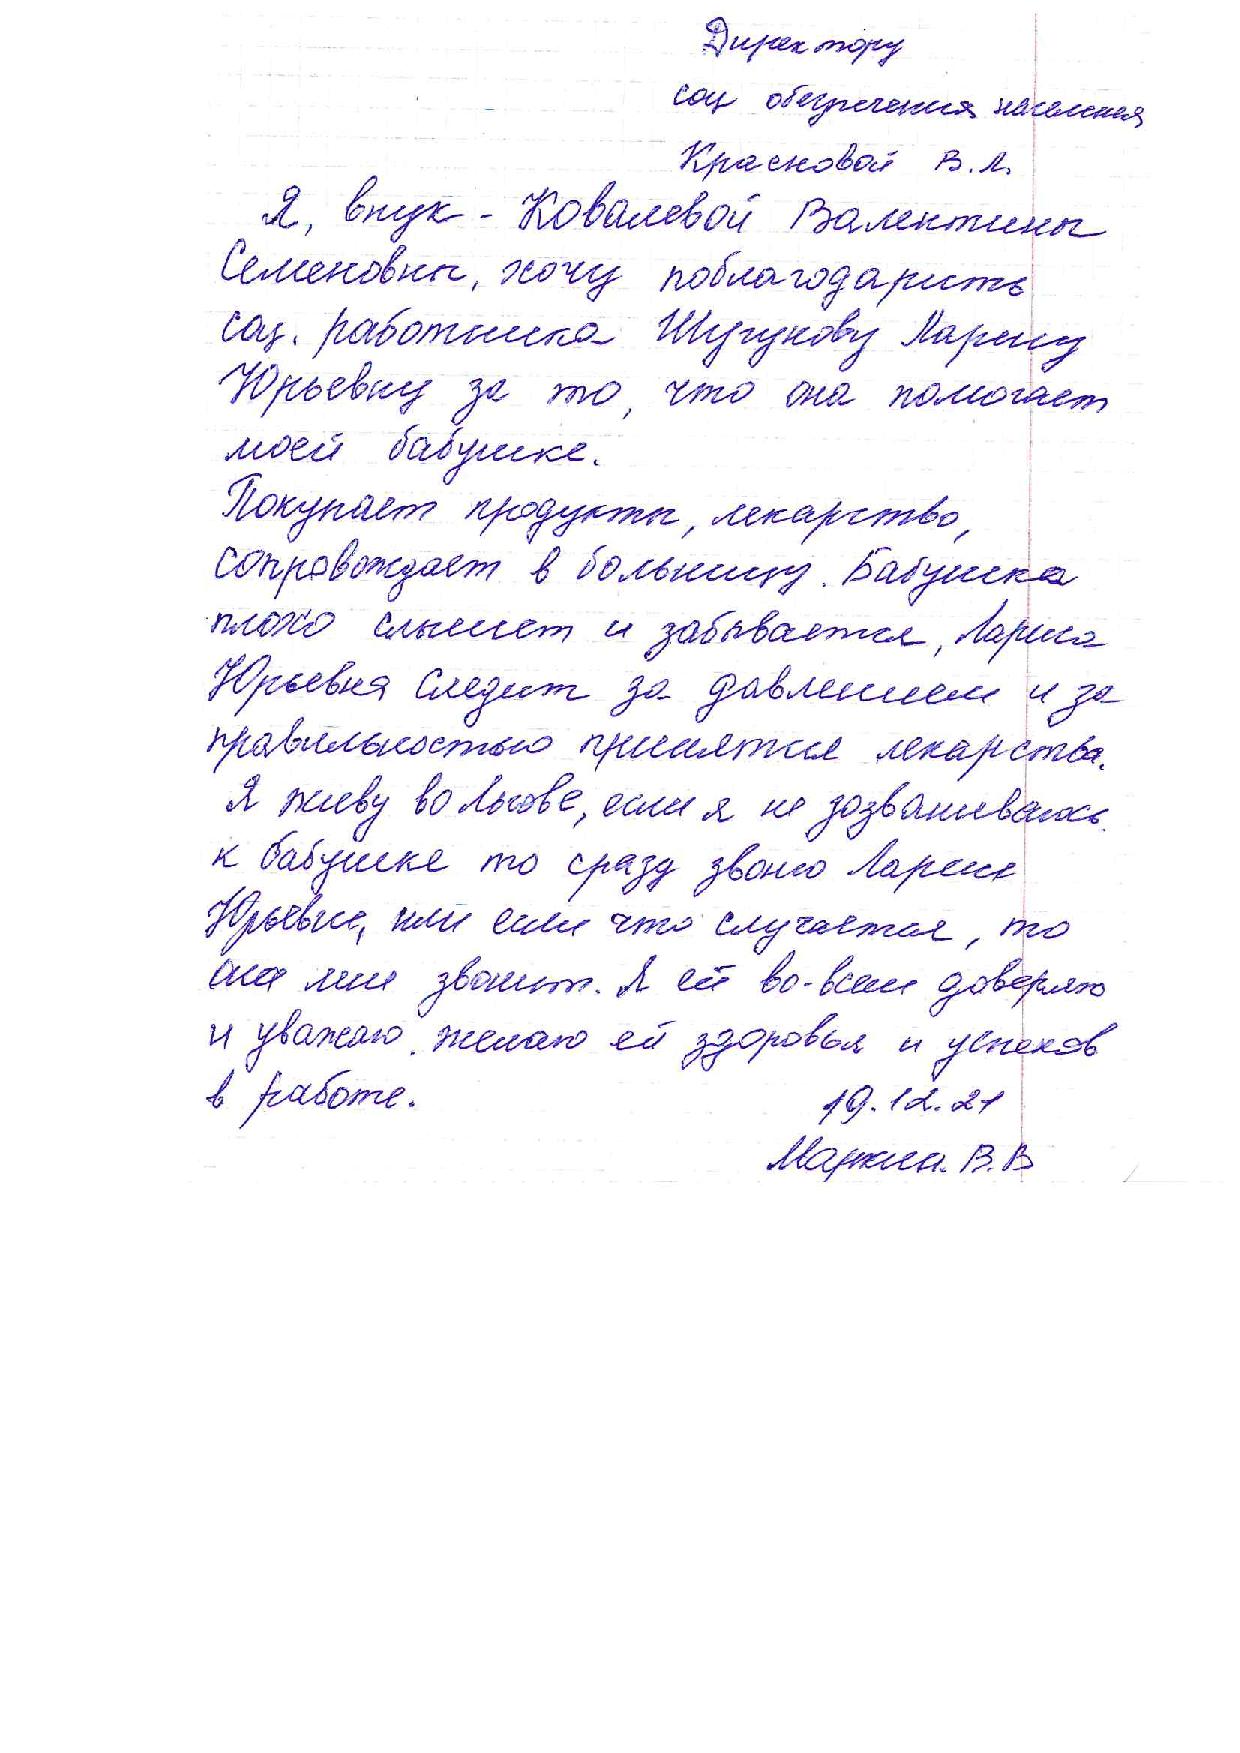 Директору
соц обеспечения населения
Красновой В.Л.
Я, внук - Ковалевой Валентины
Семеновны, хочу поблагодарить
соц. работника Шугунову Ларису
Юрьевну за то, что она помогает
моей бабушке.
Покупает продукты, лекарство,
сопровождает в больницу. Бабушка
плохо слышет и забывается, Лариса
Юрьевна следит за давлением и за
правильностью принятия лекарства.
Я живу во Львове, если я не дозваниваюсь
к бабушке то сразу звоню Ларисе
Юрьевне, или если что случается, то
она мне звонит. Я ей во-всем доверяю
и уважаю. желаю ей здоровья и успехов
в работе.
19.12.21
В.В